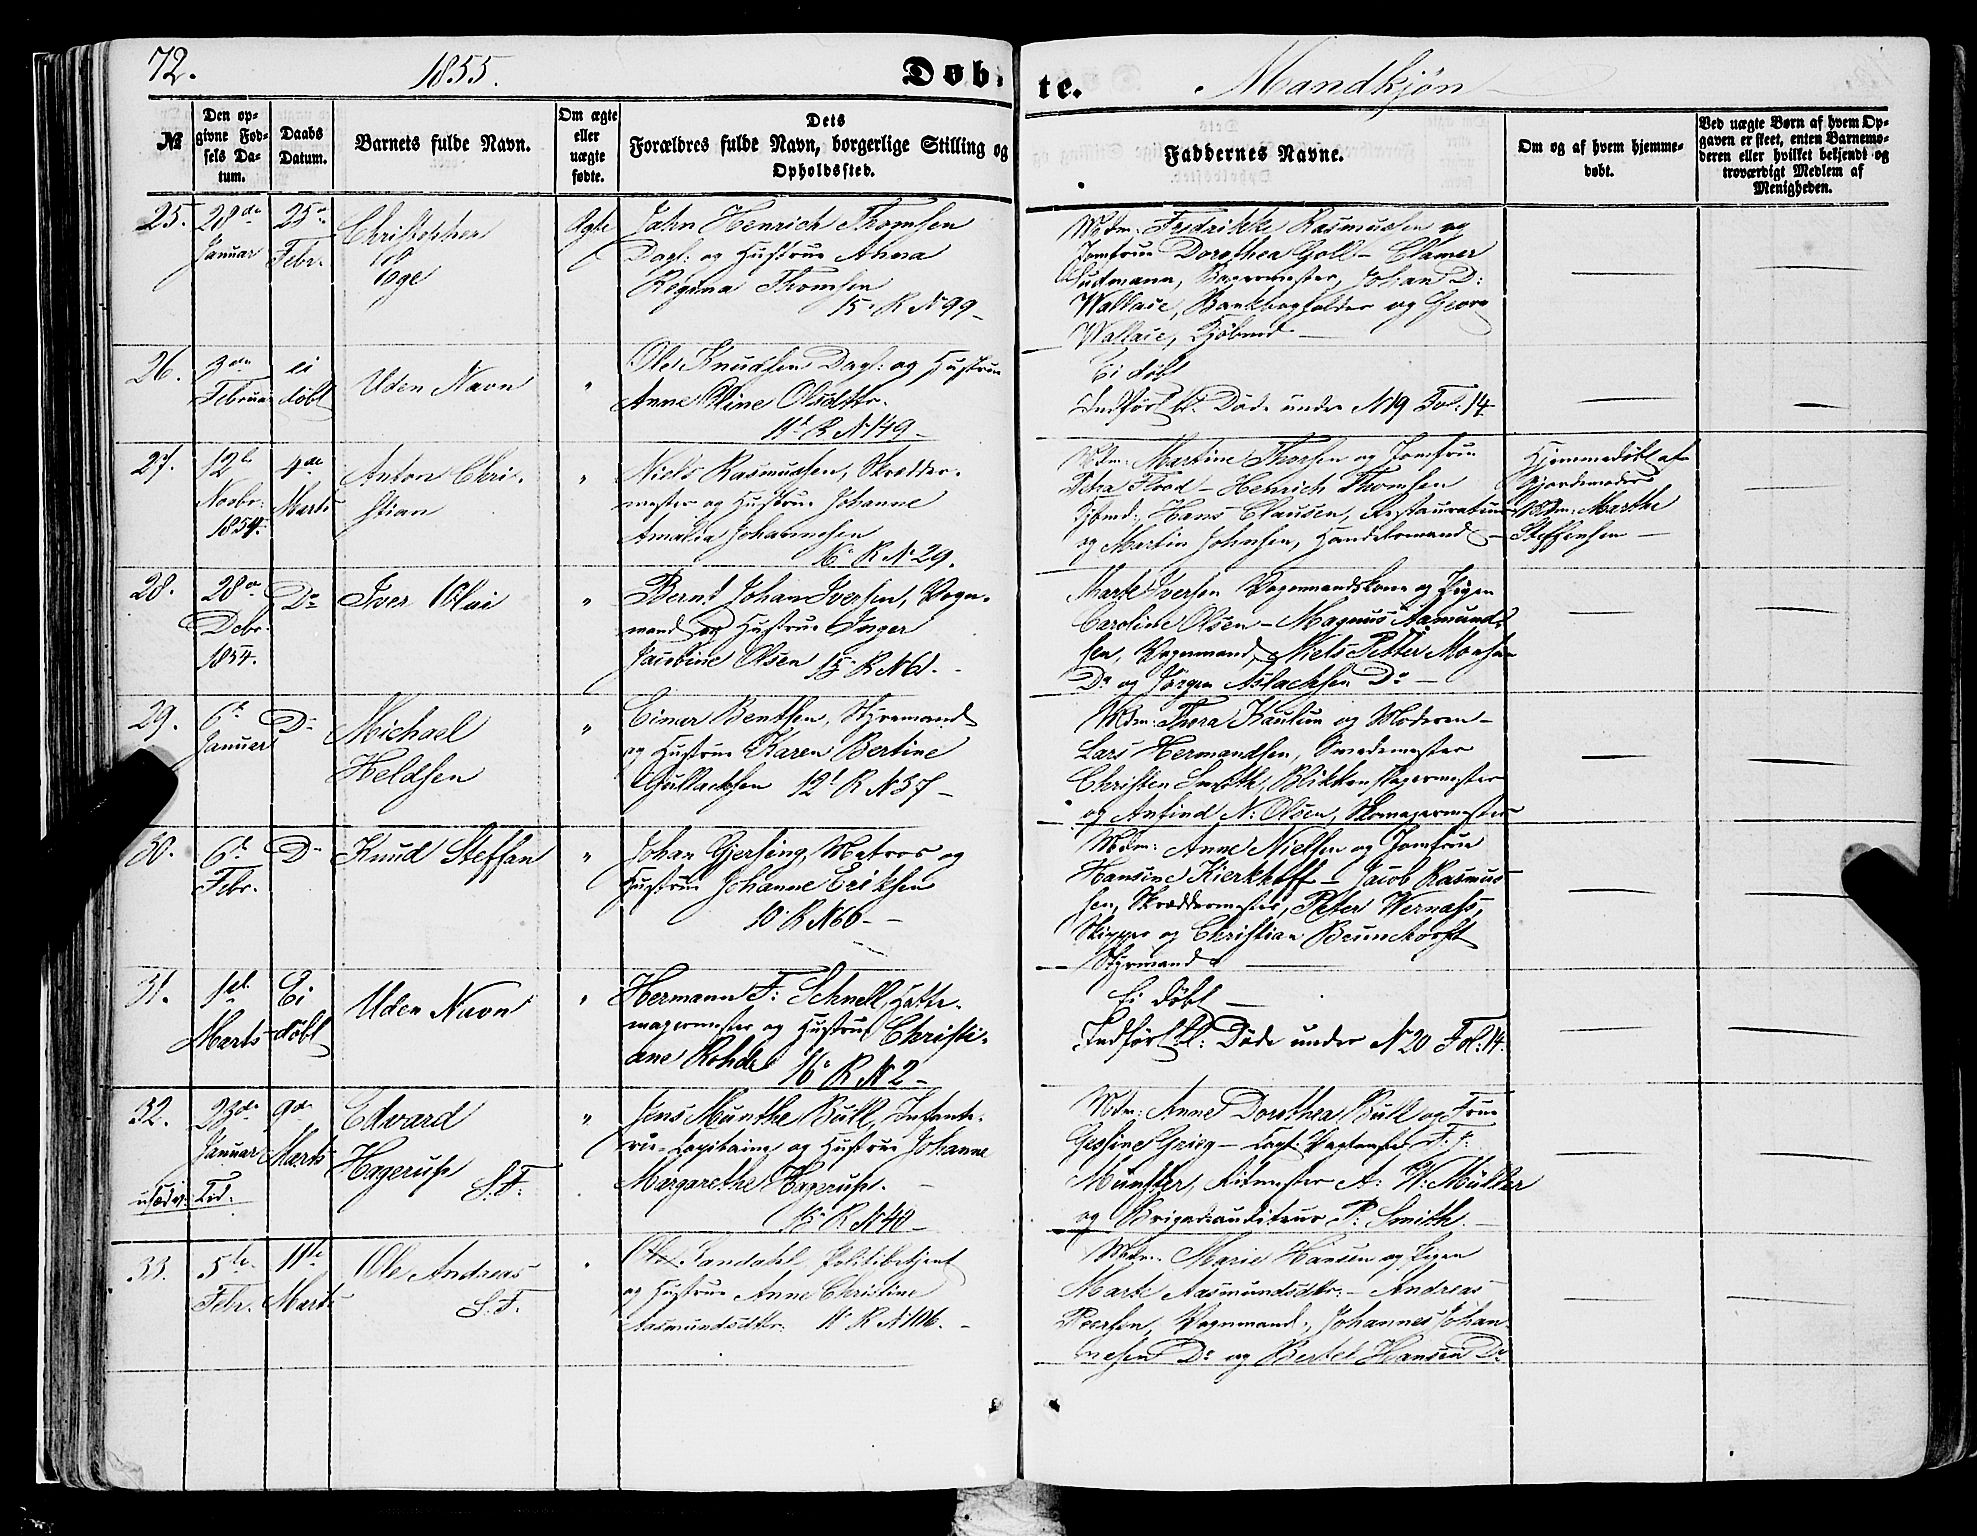 72.
1855.
Døb-
te.
Mandkjøn
№
Den op-
givne Fød-
sels Da-
tum.
Daabs
Datum.
Barnets fulde Navn.
Om ægte
eller
uægte
fødte.
Dets
Forældres fulde Navn, borgerlige Stilling og
Opholdssted.
Faddernes Navne.
Om og af hvem hjemme-
døbt.
Ved uægte Børn af hvem Op-
gaven er skeet, enten Barnemo-
deren eller hvilket bekjendt og
troværdigt Medlem af
Menigheden.
25.
28de
Januar
25de
Febr.
Christopher
Ægte
Jahn Henrich Thomsen
Dagl: og Hustrue Anna
Regina Thomsen
15. R N 99 -
Mdm: Fredrikke Rasmussen og
Jomfrue Dorothea Goll - Clamer
Bagermester, Johan D:
Wallace, Bankbogholder og Georg
Wallace, Kjøbmd -
26.
3die
Februar
ei
døbt
Uden Navn
"
Ole Knudsen Dagl: og Hustrue
Anne Oline Olsdttr.
11t R N 149 -
Ei døbt
Indført bl. Døde under N 19 Fol: 14
27.
12te
Novbr.
1854.
4de
Marts
Anton Chri-
stian
"
Niels Rasmussen, Skrædder-
mester og Hustrue Johanne
Amalia Johannesen
16. R N 29.
Mdm: Martine Thorsen og Jomfrue
Petra Flood - Henrich Thomsen
Kjbmd, Hans Clausen, Restaurateur
og Martin Johnsen, Handelsmand
Hjemmedøbt af
Gjordemoder
Mdm: Marthe
Steffensen -
28.
28de
Debr.
1854.
Do
Iver Olai
"
Bernt Johan Iversen, Vogn-
mand og Hustrue Inger
Jacobine Olsen 15. R N 61. -
Marte Iversen Vognmandskone og Pigen
Caroline Olsen - Magnus Aamund-
sen, Vognmand, Niels Petter Monsen
Do og Jörgen Aslachsen Do -
29.
6te
Januar
Do
Michael
Heldsen
"
Einer Bentsen, Styrmand
og Hustrue Karen Bertine
Gullachsen 12t R N 57 -
Mdm: Thora Kaulum og Moderen -
Lars Hermandsen, Smedemester
Christen Smith, Blikkenslagermester
og Anfind N. Olsen, Skomagermester
30.
6te
Febr.
Do
Knud Steffan
"
Johan Gjersing, Matros og
Hustrue Johanne Eriksen
10. R N 66 -
Mdm: Anne Nielsen og Jomfrue
Hansine Kierkhoff - Jacob Rasmus-
sen, Skræddermester, Peter Wernøss,
Skipper og Christian Brunchorst
Styrmand
31.
1ste
Marts
Ei
døbt
Uden Navn
"
Hermann F: Schnell, Hatte-
magermester og Hustrue Christi-
ane Rohde 16. R N 2 -
Ei døbt -
Indført bl: Døde under N 20 Fol: 14.
32.
23de
Januar
9de
Marts
Edvard
Hagerup
S. F.
"
Jens Munthe Bull, Infante-
rie-Capitaine og Hustrue Johanne
Margarethe Hagerup. -
15. R N 40 -
Mdm: Anne Dorothea Bull og Frue
Gessine Grieg - F. J.
Münster, Ritmester A: W: Müller
og Brigadeauditeur P: Smith -
33.
5te
Febr.
11te
Marts
Ole Andreas
S. F.
"
Ole Sandahl Politibetjent
og Hustrue Anne Christine
Aasmundsdttr. 11. R N 106. -
Mdm. Marie Hansen og Pigen
Marte Aasmundsdttr. - Andreas
Peersen, Vognmand, Johannes Johan-
nesen Do og Bertel Hansen Do